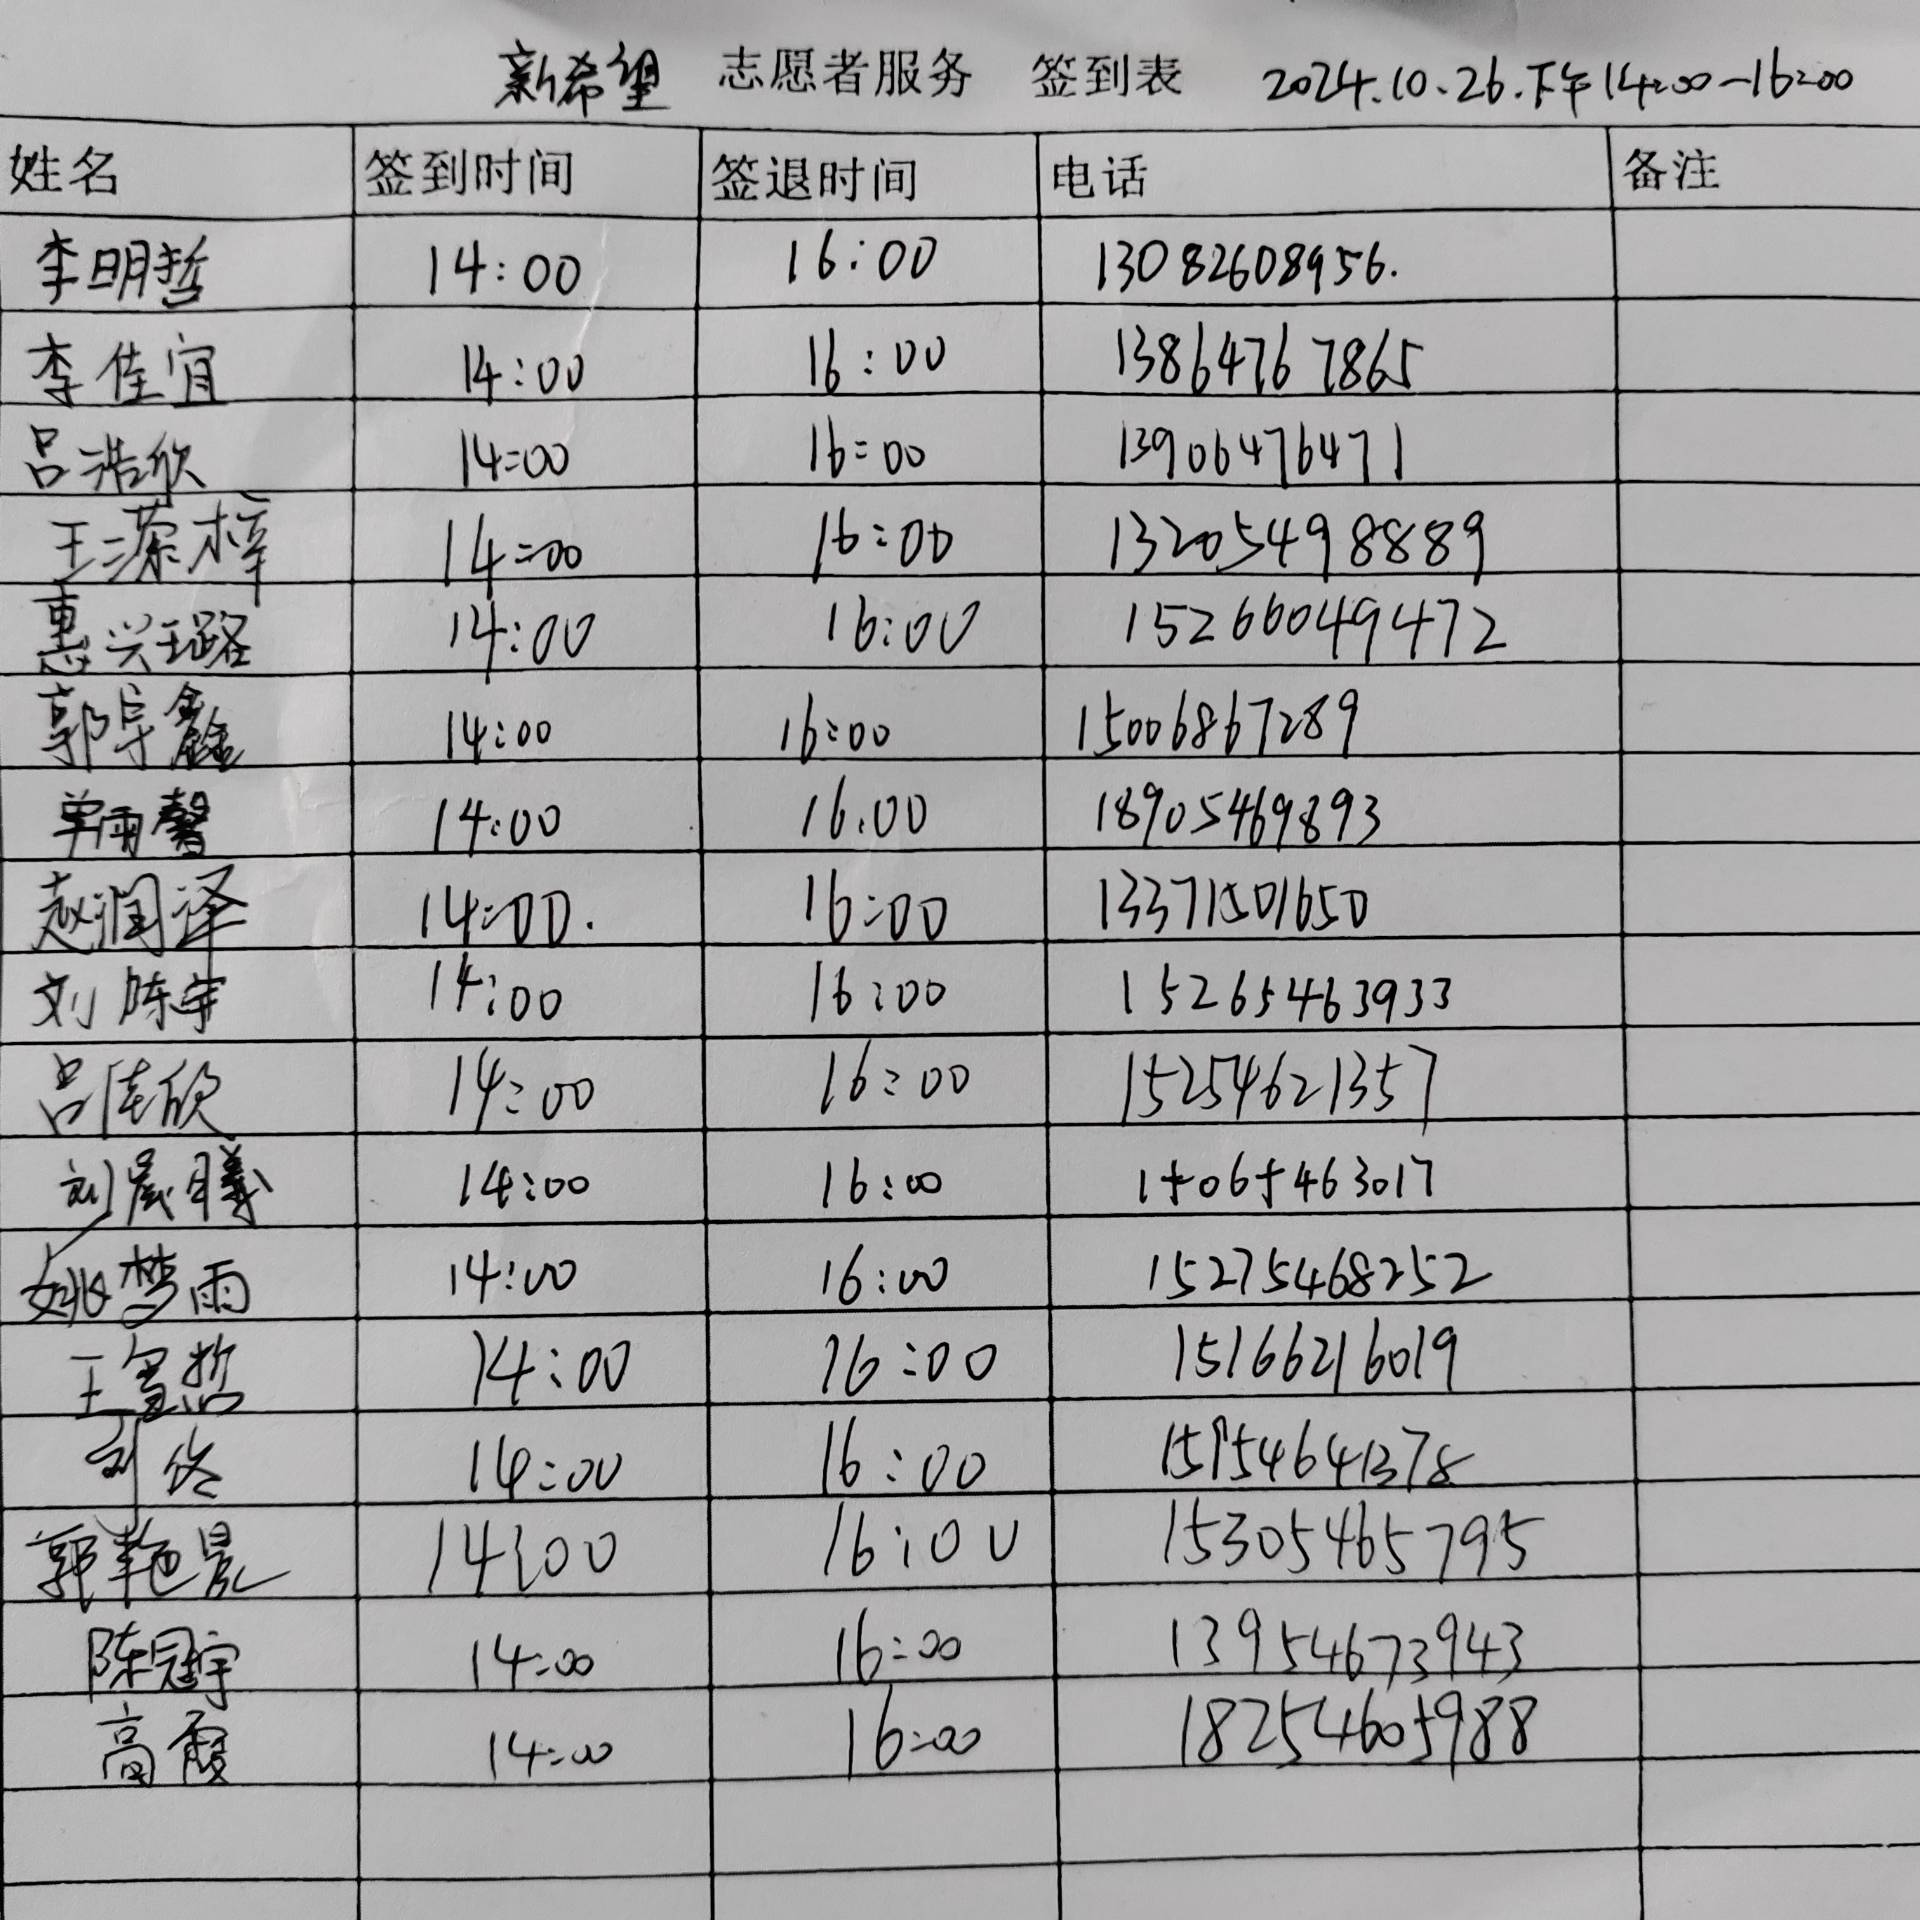 新希望 志愿者服务 签到表 2024.10.26.下午14:00-16:00
姓名 签到时间 签退时间 电话 备注
李明哲 14:00 16:00 13082608956.
李佳宜 14:00 16:00 13864767865
吕浩欣 14:00 16:00 13906476471
王潆梓 14:00 16:00 13205498889
惠兴璐 14:00 16:00 15266049472
郭宇鑫 14:00 16:00 15006867289
单雨馨 14:00 16:00 18905469893
赵润泽 14:00. 16:00 13371501650
刘陈宇 14:00 16:00 15265463933
吕佳欣 14:00 16:00 15254621357
刘晨曦 14:00 16:00 15065463017
姚梦雨 14:00 16:00 15275468252
王 哲 14:00 16:00 15166216019
刘佟 14:00 16:00
郭艳晨 14:00 16:00 15305465795
陈冠宇 14:00 16:00 13954673943
高霞 14:00 16:00 18254605988